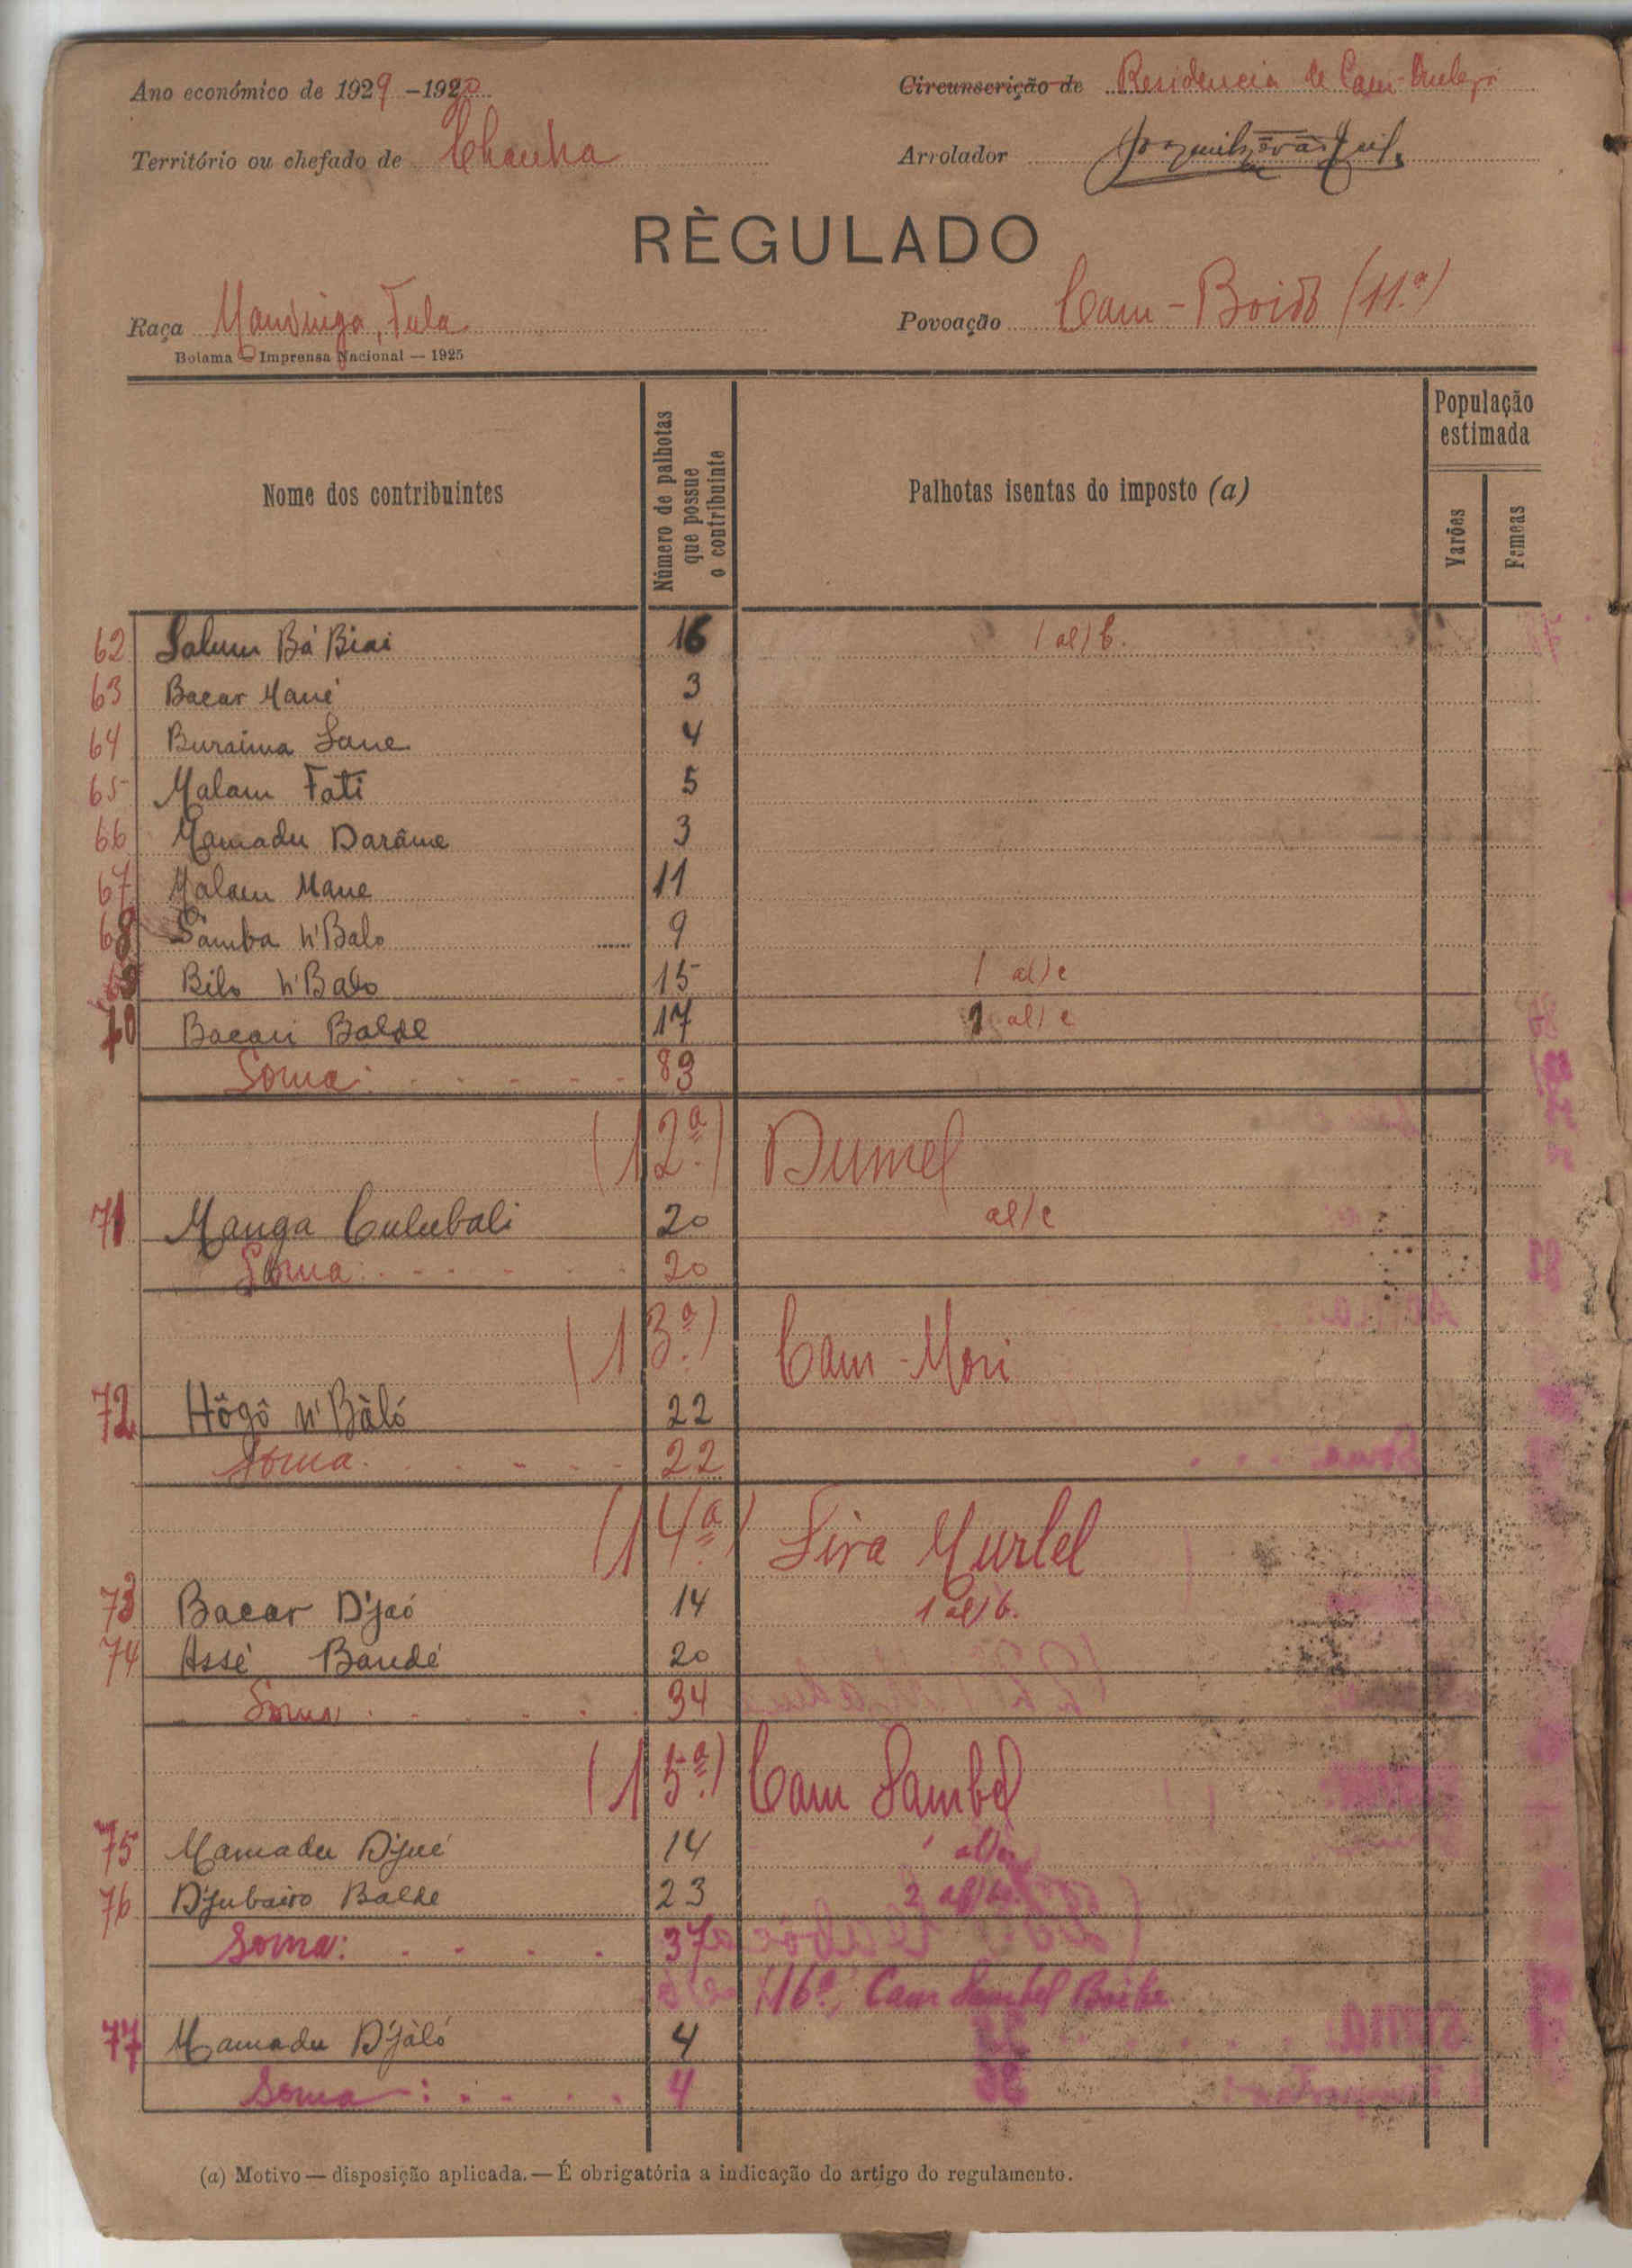 Ano económico de 1929 – 1920
Circunscrição de Residencia de
Território ou chefado de Chanha
Arrolador
RÈGULADO
Raça Mandinga, Fula
Povoação Cam - Boidó (11.ª)
Bolama — Imprensa Nacional — 1925
Nome dos contribuintes
Número de palhotas que possue o contribuinte
Palhotas isentas do imposto (a)
População estimada
Varões
Femeas
62 Salum Bá Biai 16 1 al) b.
63 Bacar Mané 3
64 Buraima Sane 4
65 Malam Fati 5
66 Mamadu Darâme 3
67 Malam Mane 11
68 Samba n'Balo 9
69 Bilo n'Balo 15 1 al) c
70 Bacari Balde 17 1 al) c
Soma: 83
(12ª) Dumel
71 Manga Culubali 20 al) c
Soma: 20
(13ª) Cam - Mori
72 Hôgô n'Bàló 22
Soma 22
(14ª) Sira Murlel
73 Bacar D'jaó 14 1 al) b.
74 Assé Bandé 20
Soma 34
(15ª) Cam Sambel
75 Mamadu D'jué 14 1 al)
76 D'jubairo Balde 23 2 al) b.
Soma: 37
(16ª) Cam Sambel
77 Mamadu D'jàló 4
Soma: 4
(a) Motivo — disposição aplicada. — É obrigatória a indicação do artigo do regulamento.